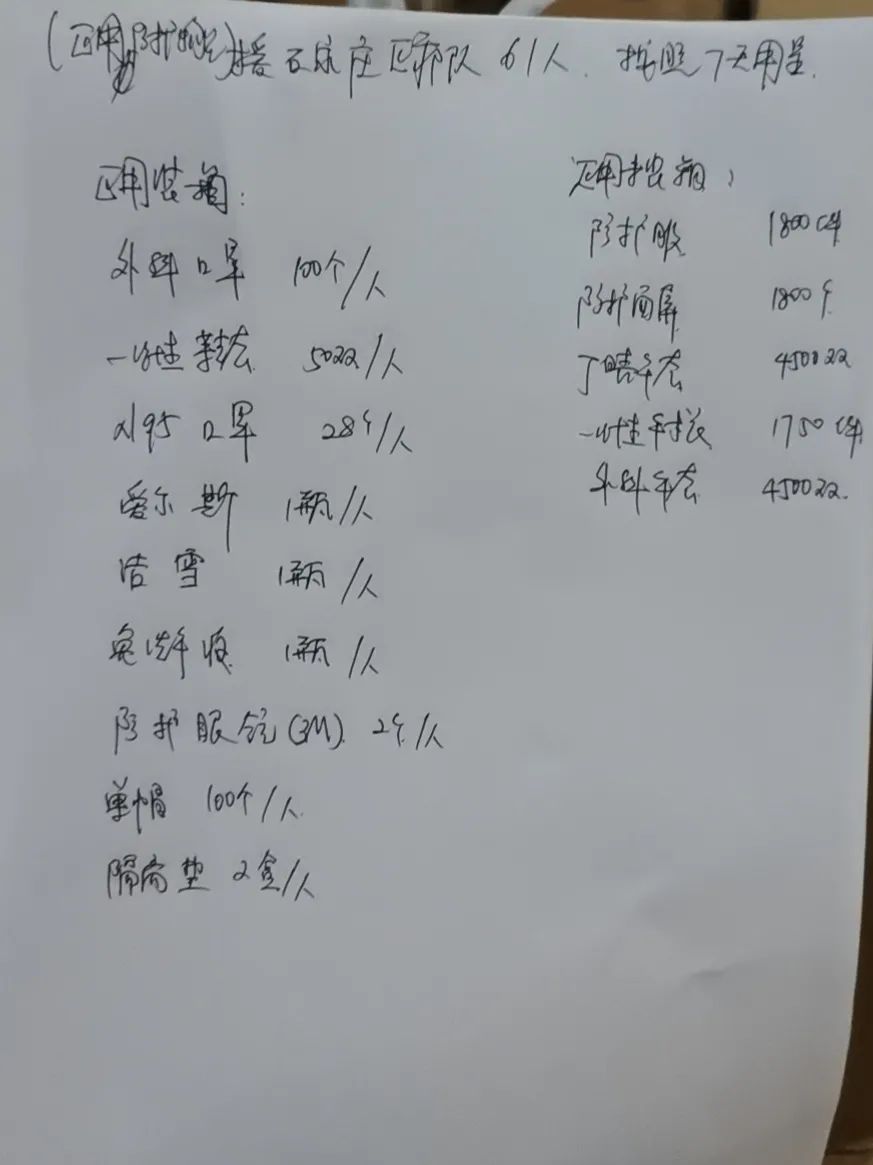 (医用防护物资)援石家庄医疗队 61人. 按照7天用量.
医用装箱:
外科口罩 100个/人
一次性 50双/人
N95口罩 28个/人
爱尔斯 1瓶/人
洁雪 1瓶/人
免洗手液 1瓶/人
防护眼镜(3M). 2个/人
单帽 100个/人
隔离垫 2盒/人
医用装箱:
防护服 1800件
防护面屏 1800个
丁晴手套 4500双
一次性手术衣 1750件
外科手套 4500双.